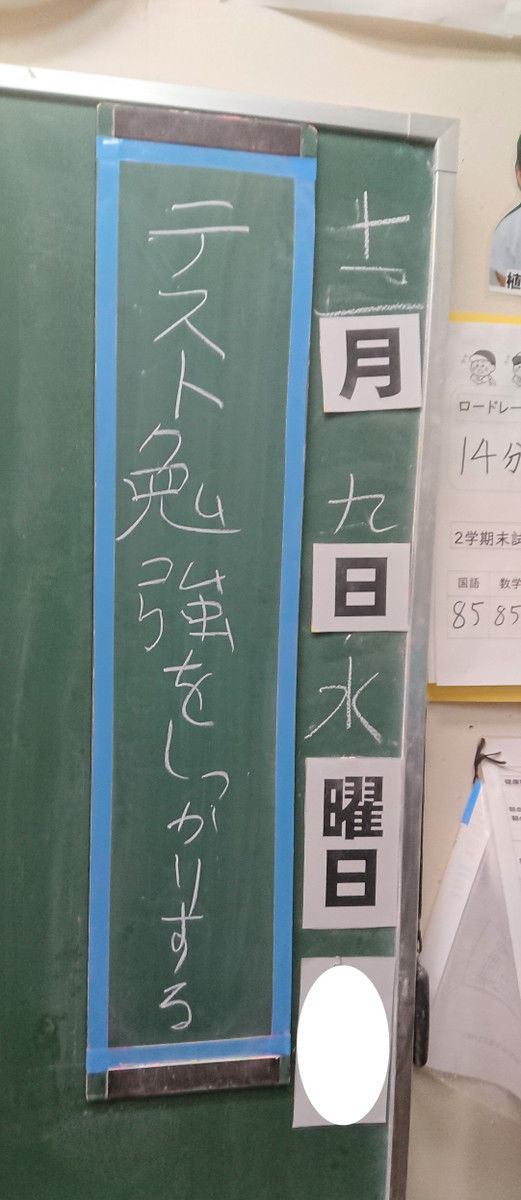 十二月九日水曜日
テスト勉強をしっかりする
植
ロードレー
14分
2学期末試
国語 数学
85 85